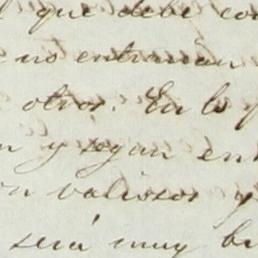 que debe co
no entraran
otros. En lo
y segun en
valiosos y
será muy b